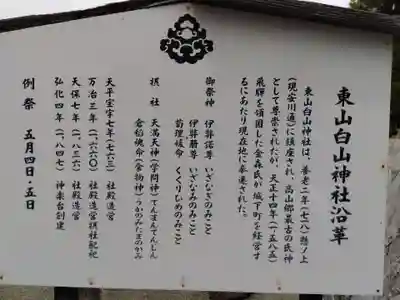 東山白山神社沿革
東山白山神社は、養老二年(七一八)懸ノ上
(現安川通)に鎮座され、高山郷最古の氏神
として尊崇されたが、天正十四年(一五八五)
飛騨を領国した金森氏が城下町を経営す
るにあたり現在地に奉遷された。
御祭神 伊弉諾尊 いざなぎのみこと
伊弉冊尊 いざなみのみこと
菊理媛命 くくりひめのみこと
摂社 天満天神(学問神)てんまんてんじん
倉稲魂命(食物神)うかのみたまのかみ
天平宝字七年(七六三) 社殿造営
万治三年(一、六六〇) 社殿造営摂社配祀
天保七年(一、八三六) 社殿造営
弘化四年(一、八四七) 神楽台創建
例祭 五月四日・五日